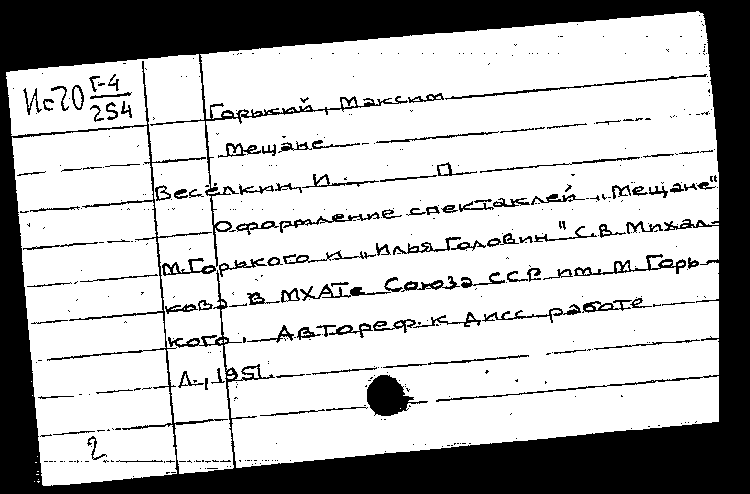 Ис20 Г-4
254
Горький, Максим
Мещане
Весёлкин, И. П
Оформление спектаклей „Мещане"
М.Горького и „Илья Головин" С.В. Михал-
кова в МХАТе Союза ССР им. М. Горь-
кого. Автореф. к дисс. работе
Л., 1951.
2